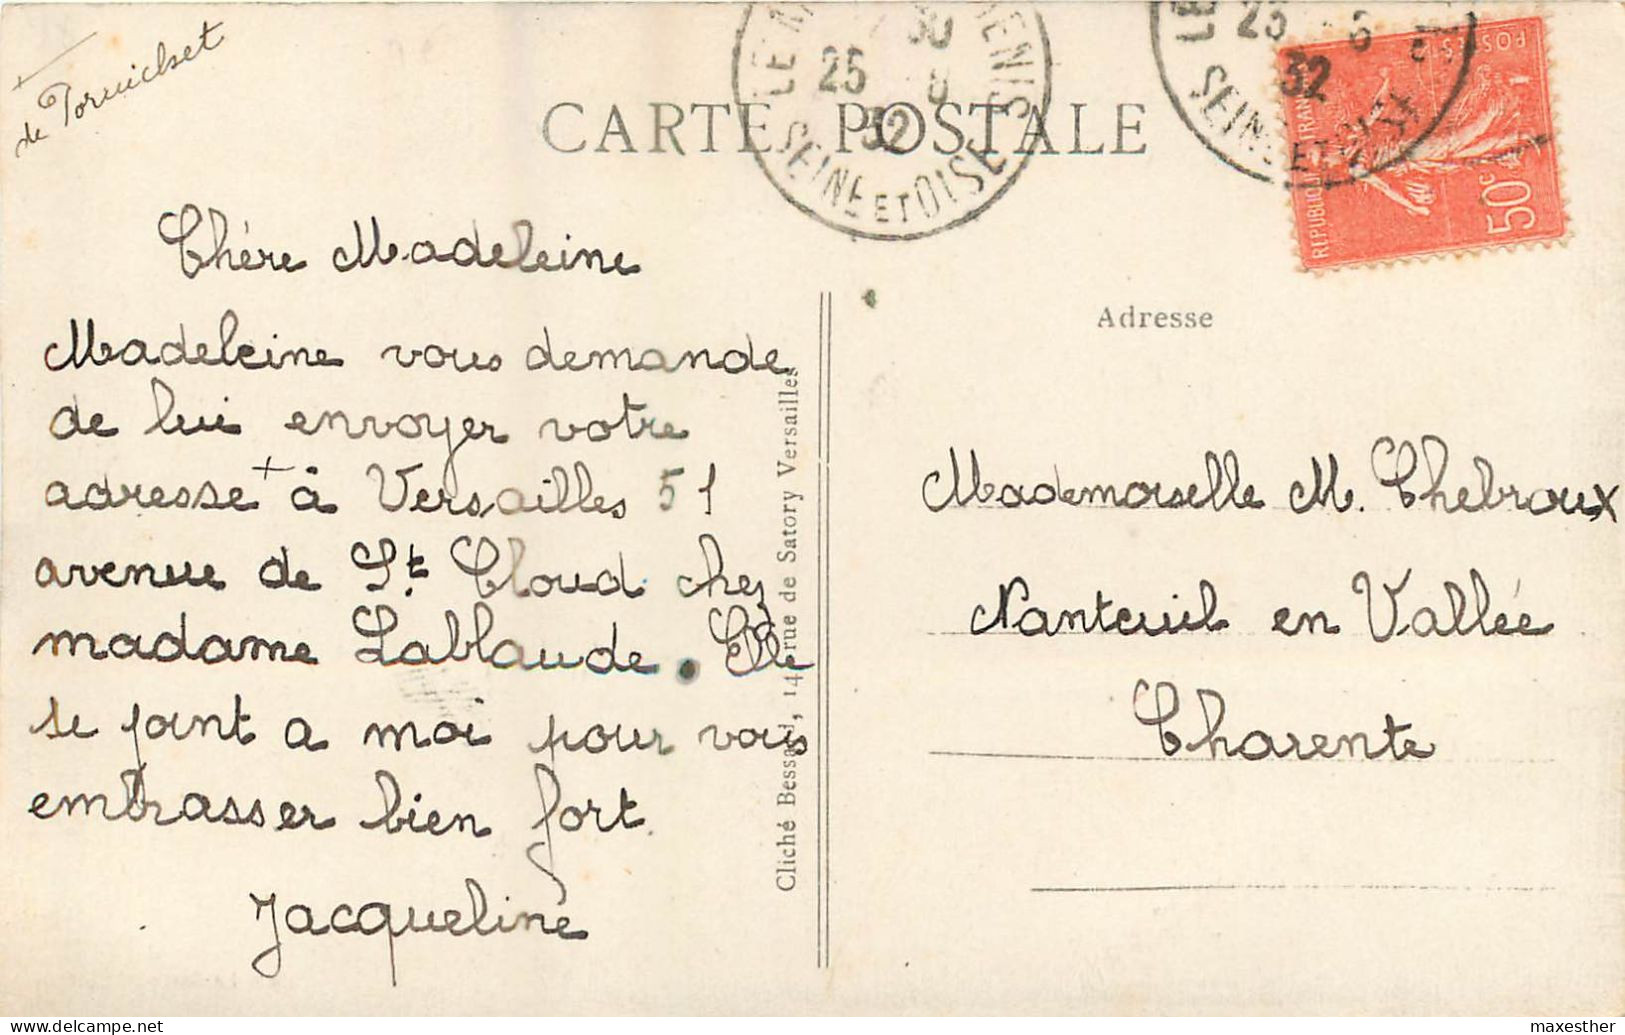 +
de
CARTE POSTALE
Chère Madeleine
Madeleine vous demande
de lui envoyer votre
adresse + à Versailles 51
avenue de St Cloud chez
madame Lablaude. Elle
se joint a moi pour vous
embrasser bien fort.
Jacqueline
Cliché Bessard, 14 rue de Satory Versailles
25
32
SEINE ET OISE
23
32
SEINE ET OISE
POSTES
REPUBLIQUE FRANÇAISE
50c
Adresse
Mademoiselle M. Chebroux
Nanteuil en Vallée
Charente
maxesther